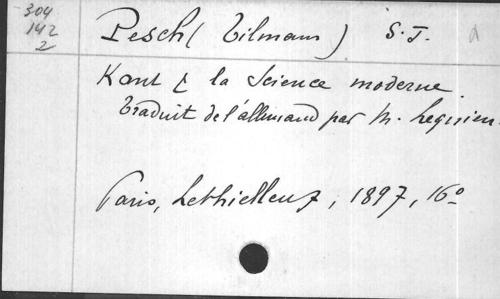 304
142
2
Pesch (Tilmann) S. J.
Kant & la Science moderne.
Traduit de l'allemand par M. Lequien.
Paris, Lethielleux, 1897, 16º